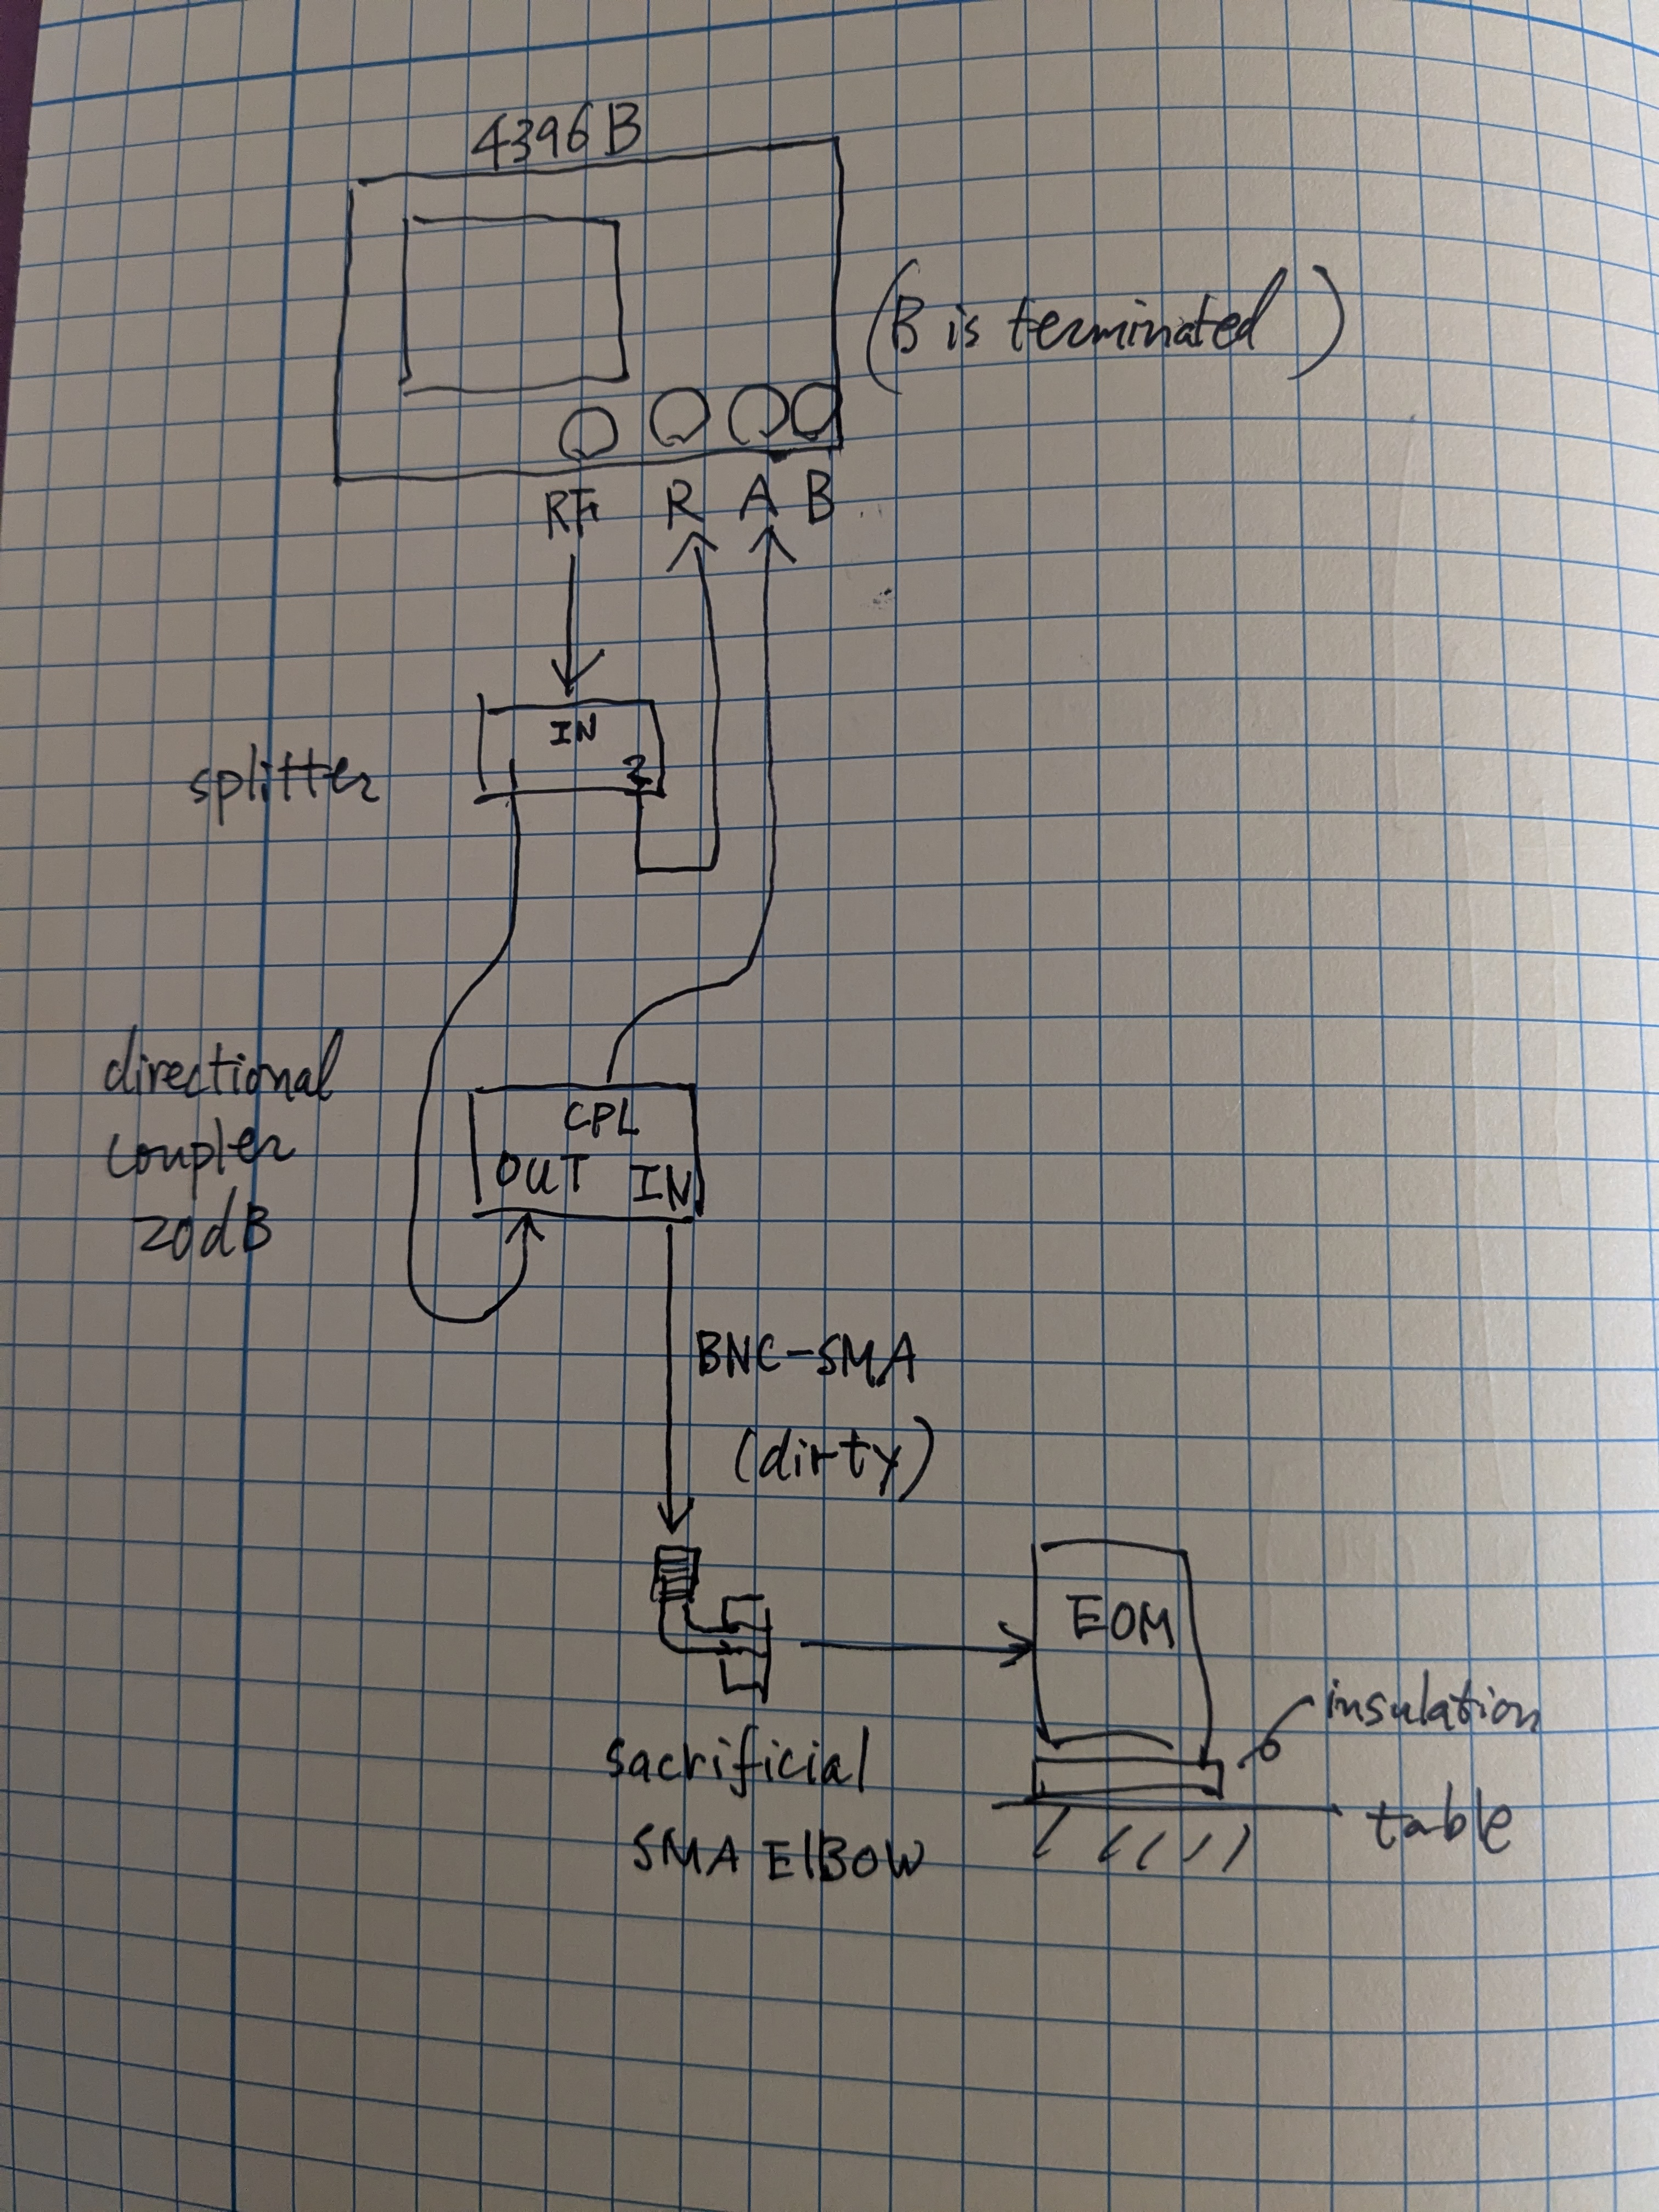 4396B
(B is terminated)
RF R A B
IN
1 2
splitter
directional
coupler
20dB
CPL
OUT IN
BNC-SMA
(dirty)
EOM
insulation
sacrificial
SMA ElBOW
table